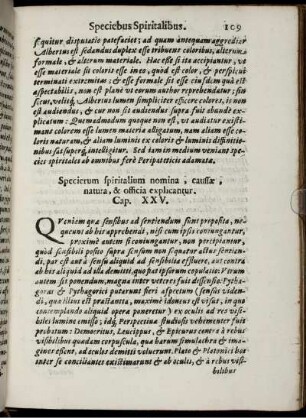 Speciebus Spiritalibus. 109
sequitur disputatio patefaciet; ad quam antequam aggredior
Albertus est sedandus duplex esse tribuens coloribus, alterum
formale, & alterum materiale. Hac esse si ita accipiuntur, ut
esse materiale sit coloris esse imo, quod est color, & perspicui
terminati extremitas: & esse formale sit esse eiusdem quà est
aspectabilis, non est planè ut eorum author reprehendatur; sin
secus, velitque, Albertus lumen simpliciter efficere colores, is non
est audiendus, & cur non sit audiendus supra fuit abundè ex-
plicatum. Quemadmodum quoque non est, ut audiatur existi-
mans colorem esse lumen materia alligatum, nam aliam esse co-
loris naturam, & aliam luminis ex coloris & luminis diffinitioni-
bus satis superque, intelligitur. Sed tam in medium veniant spe-
cies spiritales ab omnibus ferè Peripateticis adamata.
Specierum spiritalium nomina, causæ,
natura, & officia explicantur.
Cap. XXV.
QVeniam quæ sensibus ad sentiendum sunt proposita, ne-
queunt ab his apprehendi, nisi cum ipsis coniungantur,
proximè autem si coniungantur, non percipiantur,
quòd sensibilis posito supra sensum non signatur actus sentien-
di, par est aut à sensu aliquid ad sensibilia effluere, aut contra
ab his aliquid ad illa demitti, quo pat ipsorum copulatio: Verum
autem sit ponendum, magna inter veteres fuit dissensio: Pytha-
goras & Pythagorici putarunt fieri aspectum (sensus viden-
di, qua illius est præstantia, maximè idoneus est visus, in quo
contemplando aliquid opera poneretur) ex oculis ad res visi-
biles lumine emisso; idque Perspectivæ studiosi vehementer fuit
probatum: Democritus, Leucipus, & Epicurus contra à rebus
visibilibus quædam corpuscula, qua harum simulachra & ima-
gines essent, ad oculos demitti voluerunt. Plato & Platonici hos
inter se conciliantes existimarunt & ab oculis, & à rebus visi-
bilibus